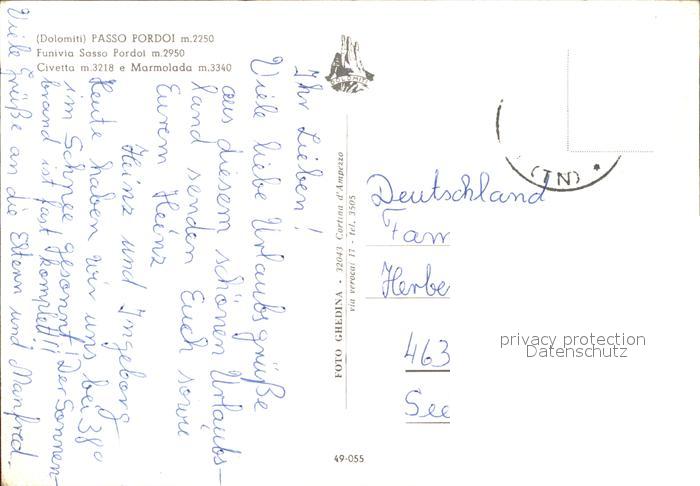 (Dolomiti) PASSO PORDOI m.2250
Funivia Sasso Pordoi m.2950
Civetta m.3218 e Marmolada m.3340
Ihr Lieben!
Viele liebe Urlaubsgrüße
aus diesem schönen Urlaubs-
land senden Euch sowie
Eurem Heinz
Heinz und Ingeborg
Heute haben wir uns bei 38°
im Schnee gesonnt! Der Sonnen-
brand ist fast komplett!!
Viele Grüße an die Eltern und Manfred.
DOLOMITI
FOTO GHEDINA - 32043 Cortina d'Ampezzo
via verocai 17 - Tel. 3595
49-055
(TN) *
Deutschland
Fam
Herbe
463
See
privacy protection
Datenschutz